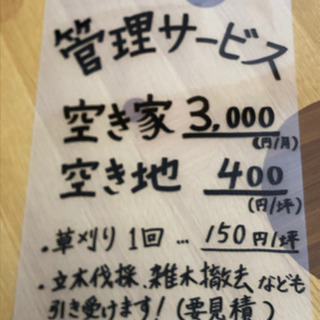 管理サービス
空き家 3,000
(円/月)
空き地 400
(円/坪)
・草刈り 1回 … 150円/坪
・立木伐採、雑木撤去なども
引き受けます!(要見積)